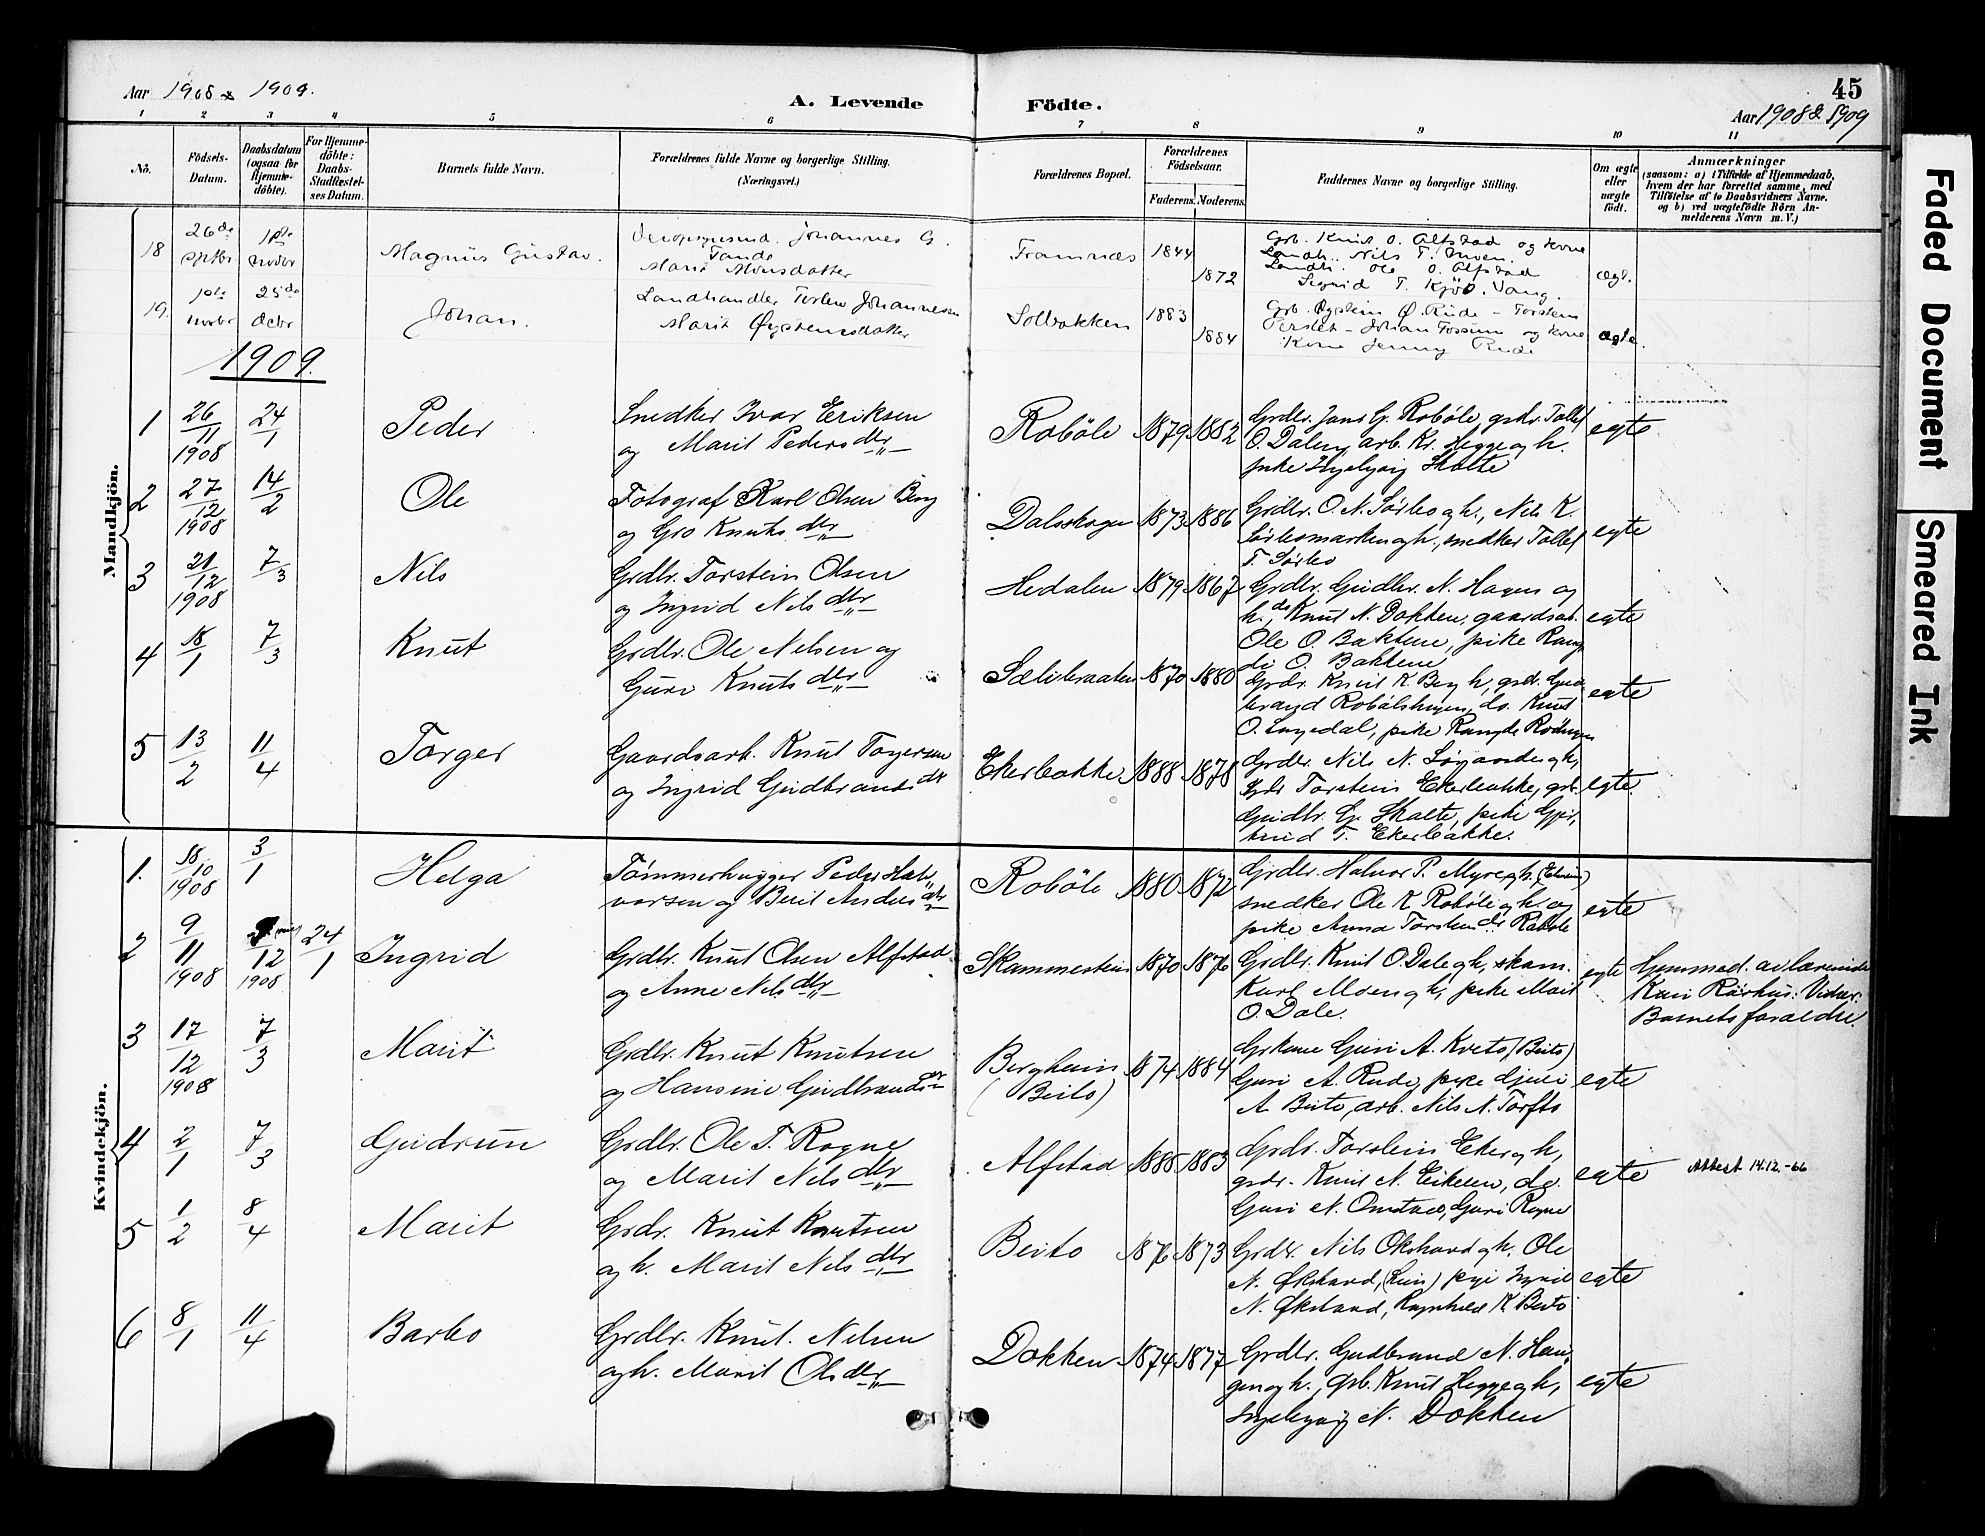 45
Aar 1908 & 1909.
A. Levende Födte.
Aar 1908 & 1909
1 2 3 4 5 6 7 8 9 10 11
No.
Födsels-
Datum.
Daabsdatum
(ogsaa for
Hjemme-
döbte).
For Hjemme-
döbte:
Daabs-
Stadfæstel-
ses Datum.
Barnets fulde Navn.
Forældrenes fulde Navne og borgerlige Stilling.
(Næringsvei.)
Forældrenes Bopæl.
Forældrenes
Födselsaar.
Faderens. Moderens.
Faddernes Navne og borgerlige Stilling.
Om ægte
eller
uægte
født.
Anmærkninger
(saasom: a) i Tilfælde af Hjemmedaab,
hvem der har forrettet samme, med
Tilföielse af to Daabsvidners Navne,
og b) ved uægtefödte Börn An-
melderens Navn m. V.)
Mandkjön.
18
26de
septbr
1ste
novbr
Magnus Gustav.
Johannes G.
Tande
Marit Monsdatter
Framnæs
1844
1872
Grb. Knut O. Alfstad og kone
Landh. Nils T. Moen.
Landh. Ole O. Alfstad
Sigrid T. Kjös. Vang.
ægt.
19.
1ste
novbr
25de
decbr
Johan.
Landhandler Torlev Johannessen
Marit Øysteinsdatter
Solbakken
1883
1884
Grb. Øystein Ø. Rude - Torstein
Perstet - Johan Fossum og kone
Kone Jenny Rude
ægte.
1909.
1
26/11
1908
24/1
Peder
Snedker Ivar Eriksen
og Marit Pedersdtr
Robøle
1879 1882
Grdbr. Jans G. Robøle, gskr. Tollef
O. Dalen, arb. Kr. Hegge og h.
pike Ingebjørg Skalte
egte
2
27/12
1908
14/2
Ole
Fotograf Karl Olsen Berg
og Gro Knutsdtr
Dalsskogen
1873 1886
Grdbr. O. N. Sørbo og h., Nils K.
Sørbomarken og h., snedker Tollef
T. Sørbo
egte
3
21/12
1908
7/3
Nils
Grdbr. Torstein Olsen
og Ingrid Nilsdtr
Hedalen
1879 1867
Grdbr. Gudbr. N. Hagen og
h., Knut N. Dokken, gaardsar.
Ole O. Bakkene, pike Rang
di O. Bakkene
egte
4
18/1
7/3
Knut
Grdbr. Ole Nelsen og
Guri Knutsdtr
Sælidbraaten
1870 1880
Grdr. Knut K. Berg h, grdr. Gud
brand Robølshagen, do. Knut
O. Lagedal, pike
egte
5
13/2
11/4
Torger
Gaardsarb. Knut Torgersen
og Ingrid Gudbrandsdtr
Ekerbakke
1888 1878
Grdbr. Nils N. Søgarde og h,
Grdr Torstein Ekerbakke, grb.
Gudbr. G. Skalte, pike Gjer,
trud T. Ekerbakke.
egte
Kvindekjön.
1.
18/10
1908
3/1
Helga
Tømmerhugger Peder Hal-
vorsen og Berit Andersdtr
Robøle
1880 1872
Grdbr. Halvor P. Myre og h.
snedker Ole K. Robøle og h. og
pike Anna Torsteinsdtr Robøle
egte
2
9/11
1908
12
1908
24/1
Ingrid
Grdbr. Knut Olsen Alfstad.
og Anne Nilsdtr
Skammestein
1870 1876
Grdbr. Knut O Dale og h, skom.
Karl Moen og h, pike Marit
O. Dale.
egte
Hjemmed. av lærerinde
Kari Rørhus. Vidner:
Barnets foraeldre.
3
17/12
1908
7/3
Marit
Grdbr. Knut Knutsen
og Hansine Gudbrandsdtr
Berghein
(Beito)
1874 1884
Grkone Guri A. Kveto (Beito)
Guri A. Rude, pike
A Beito, arb. Nils N. Torfto
egte
4
2/1
7/3
Gudrun
Grdbr. Ole T. Rogne
og Marit Nilsdtr
Alfstad
1885 1883
Grdr. Torstein Eker og h,
grdr. Knut N. Eikeren, do.
Guri N. Onstad, Guri Rogne
egte
Attest 14.12.-66
5
1/2
8/4
Marit
Grdr. Knut Knutsen
og h. Marit Nilsdtr
Beito
1876 1873
Grdbr. Nils Okshovd og h. Ole
N. Økshovd, pige Ingrid
N. Økshovd, Ragnhild K Beito
egte
6
8/1
11/4
Barbo
Grdbr. Knut. Nelsen
og h. Marit Olsdtr
Dokken
1874 1877
Grdbr. Gudbrand N. Hau-
gen og h., grb. Knut Hegge og h,
Ingebjørg N. Dokken
egte
Faded Document
Smeared Ink